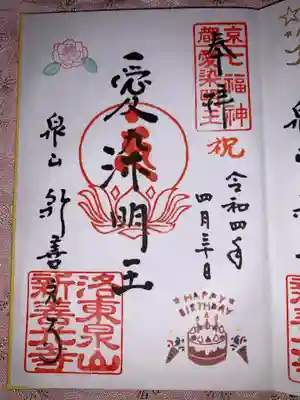 奉拝
京七福神
都愛染明王
祝
令和四年
四月三十日
愛染明王
泉山 新善光寺
洛東泉山
新善光寺
HAPPY
BIRTHDAY